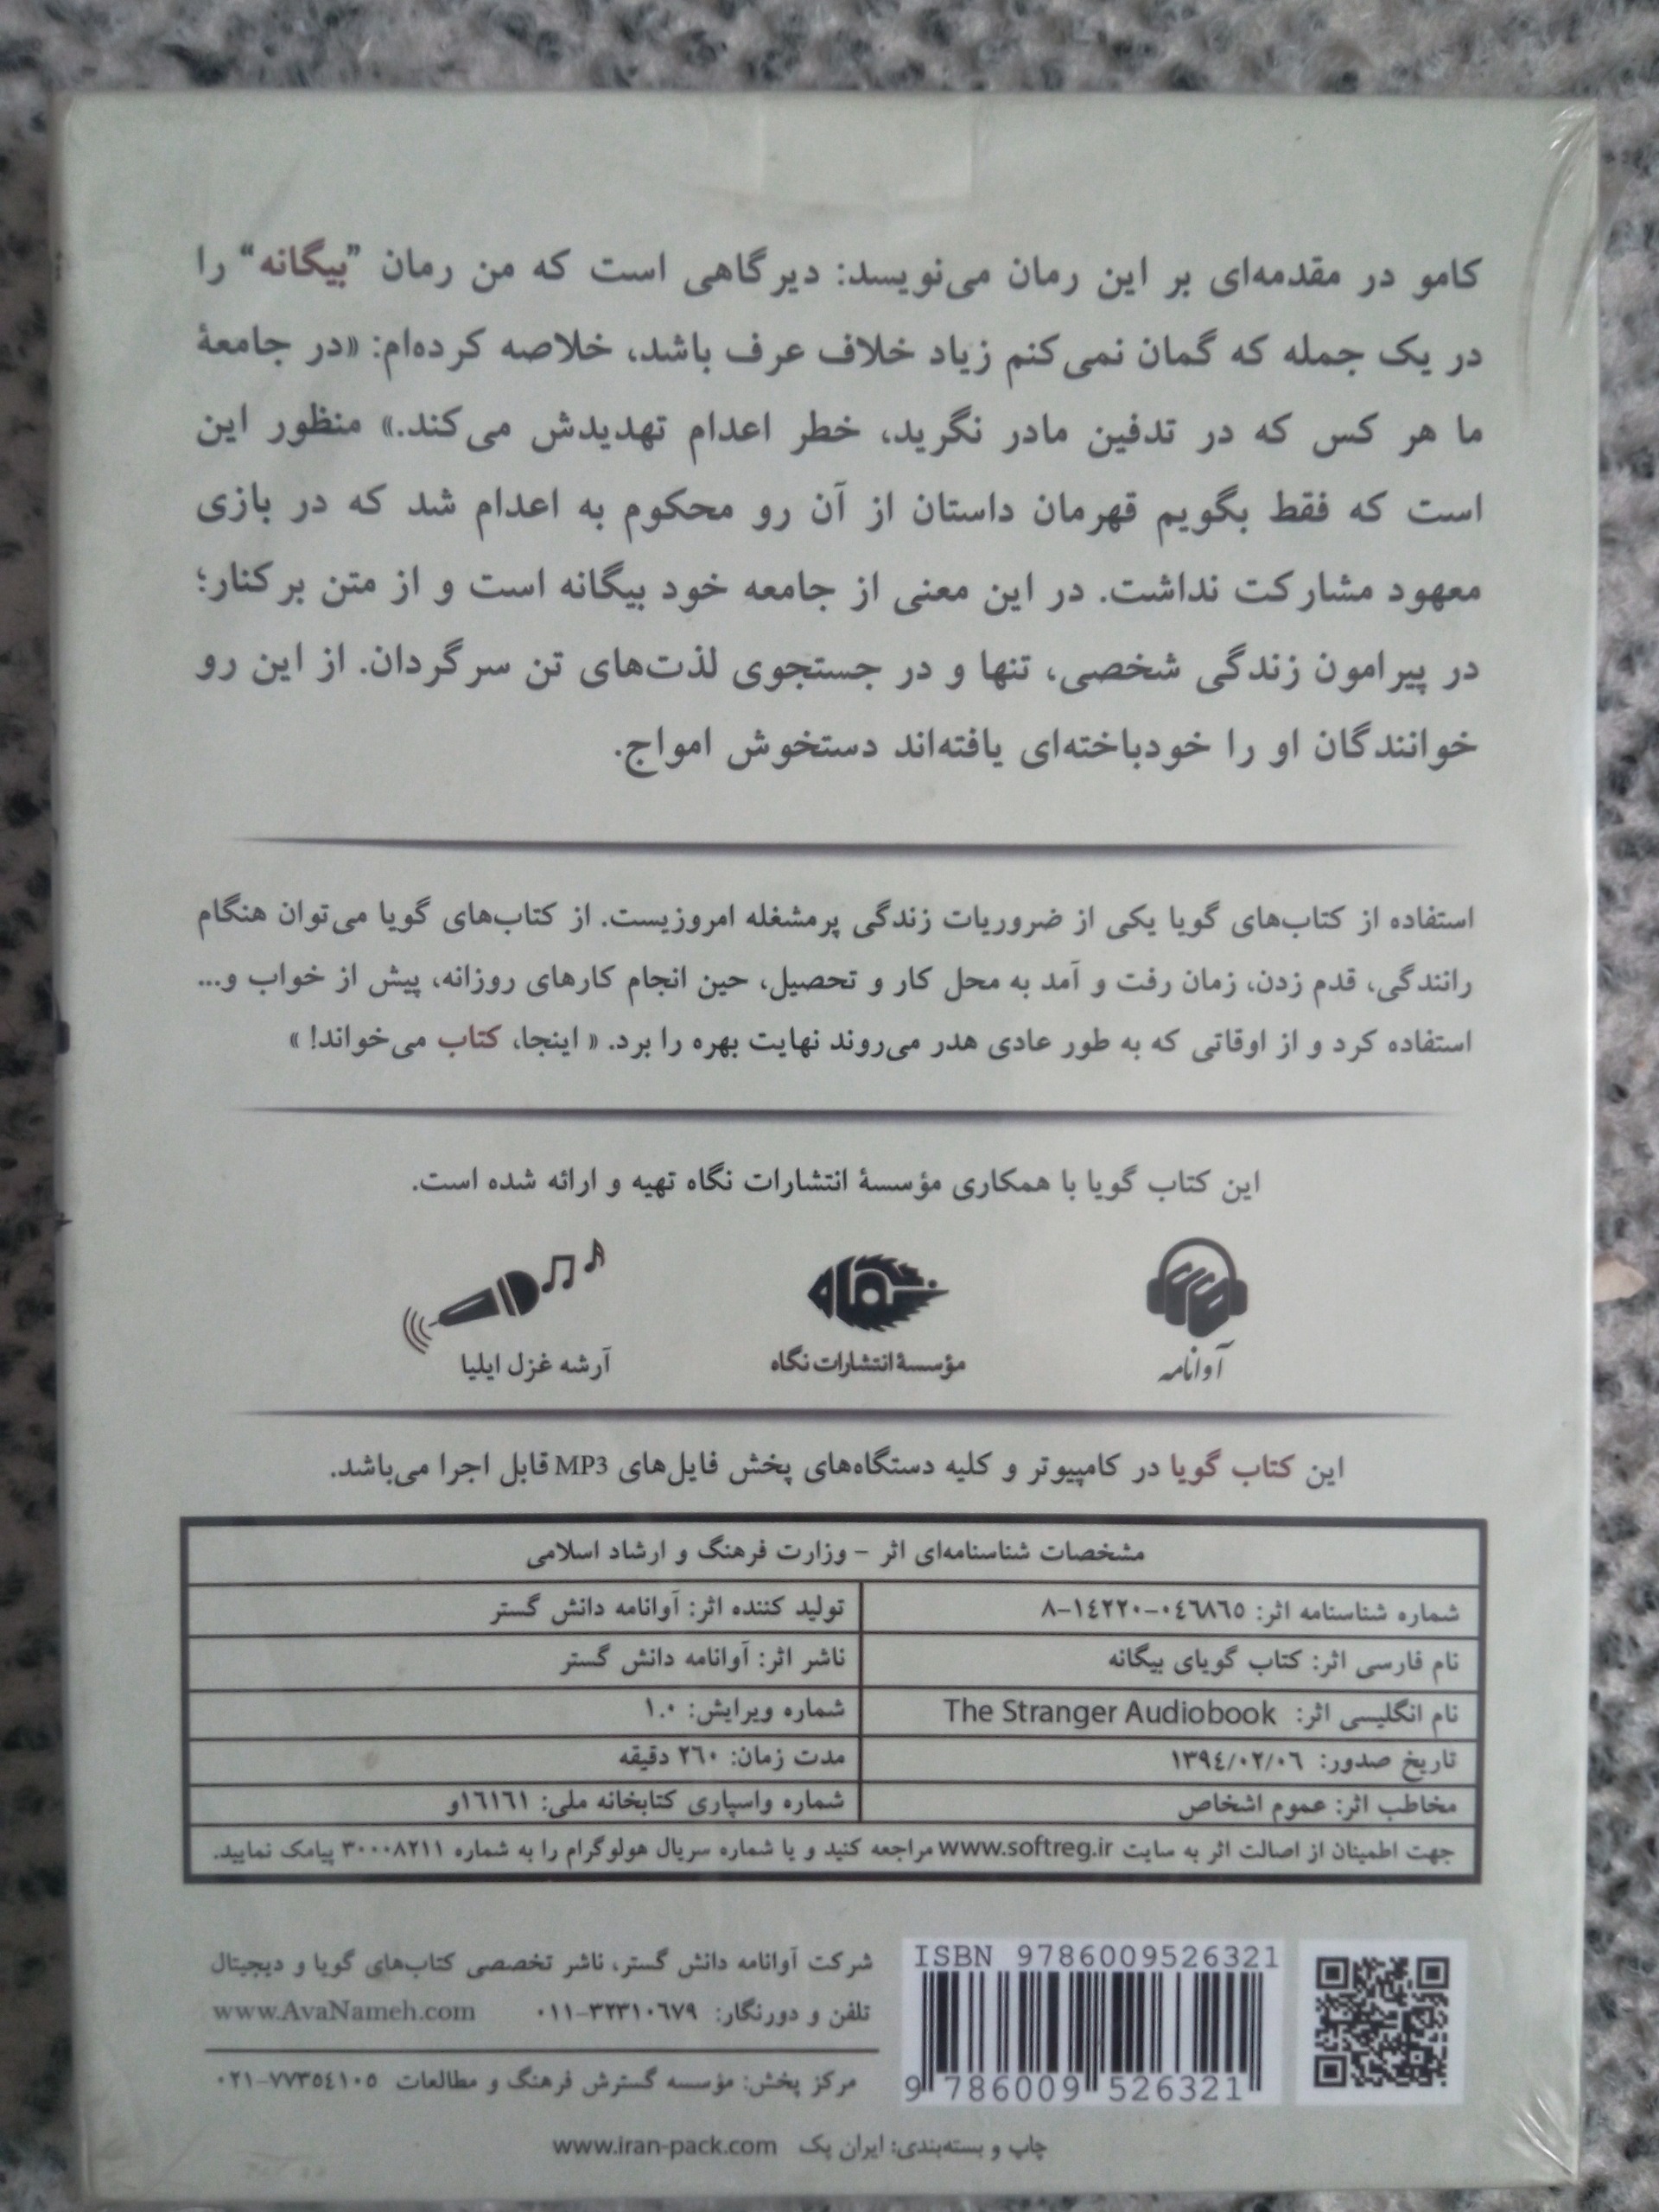 کامو در مقدمه‌ای بر این رمان می‌نویسد: دیرگاهی است که من رمان ”بیگانه“ را
در یک جمله که گمان نمی‌کنم زیاد خلاف عرف باشد، خلاصه کرده‌ام: «در جامعهٔ
ما هر کس که در تدفین مادر نگرید، خطر اعدام تهدیدش می‌کند.» منظور این
است که فقط بگویم قهرمان داستان از آن رو محکوم به اعدام شد که در بازی
معهود مشارکت نداشت. در این معنی از جامعه خود بیگانه است و از متن برکنار؛
در پیرامون زندگی شخصی، تنها و در جستجوی لذت‌های تن سرگردان. از این رو
خوانندگان او را خودباخته‌ای یافته‌اند دستخوش امواج.
استفاده از کتاب‌های گویا یکی از ضروریات زندگی پرمشغله امروزیست. از کتاب‌های گویا می‌توان هنگام
رانندگی، قدم زدن، زمان رفت و آمد به محل کار و تحصیل، حین انجام کارهای روزانه، پیش از خواب و...
استفاده کرد و از اوقاتی که به طور عادی هدر می‌روند نهایت بهره را برد. « اینجا، کتاب می‌خواند! »
این کتاب گویا با همکاری مؤسسهٔ انتشارات نگاه تهیه و ارائه شده است.
نگاه
آوانامه
مؤسسهٔ انتشارات نگاه
آرشه غزل ایلیا
این کتاب گویا در کامپیوتر و کلیه دستگاه‌های پخش فایل‌های MP3 قابل اجرا می‌باشد.
مشخصات شناسنامه‌ای اثر – وزارت فرهنگ و ارشاد اسلامی
شماره شناسنامه اثر: ۸-۱٤۲۲۰-۰٤٦۸٦٥
تولید کننده اثر: آوانامه دانش گستر
نام فارسی اثر: کتاب گویای بیگانه
ناشر اثر: آوانامه دانش گستر
نام انگلیسی اثر: The Stranger Audiobook
شماره ویرایش: ۱.۰
تاریخ صدور: ۱۳۹٤/۰۲/۰٦
مدت زمان: ۲٦۰ دقیقه
مخاطب اثر: عموم اشخاص
شماره واسپاری کتابخانه ملی: ۱٦۱٦۱و
جهت اطمینان از اصالت اثر به سایت www.softreg.ir مراجعه کنید و یا شماره سریال هولوگرام را به شماره ۳۰۰۰۸۲۱۱ پیامک نمایید.
ISBN 9786009526321
9 786009 526321
شرکت آوانامه دانش گستر، ناشر تخصصی کتاب‌های گویا و دیجیتال
تلفن و دورنگار: ۰۱۱-۳۲۳۱۰٦۷۹ www.AvaNameh.com
مرکز پخش: مؤسسه گسترش فرهنگ و مطالعات ۰۲۱-۷۷۳٥٤۱۰٥
چاپ و بسته‌بندی: ایران پک www.iran-pack.com